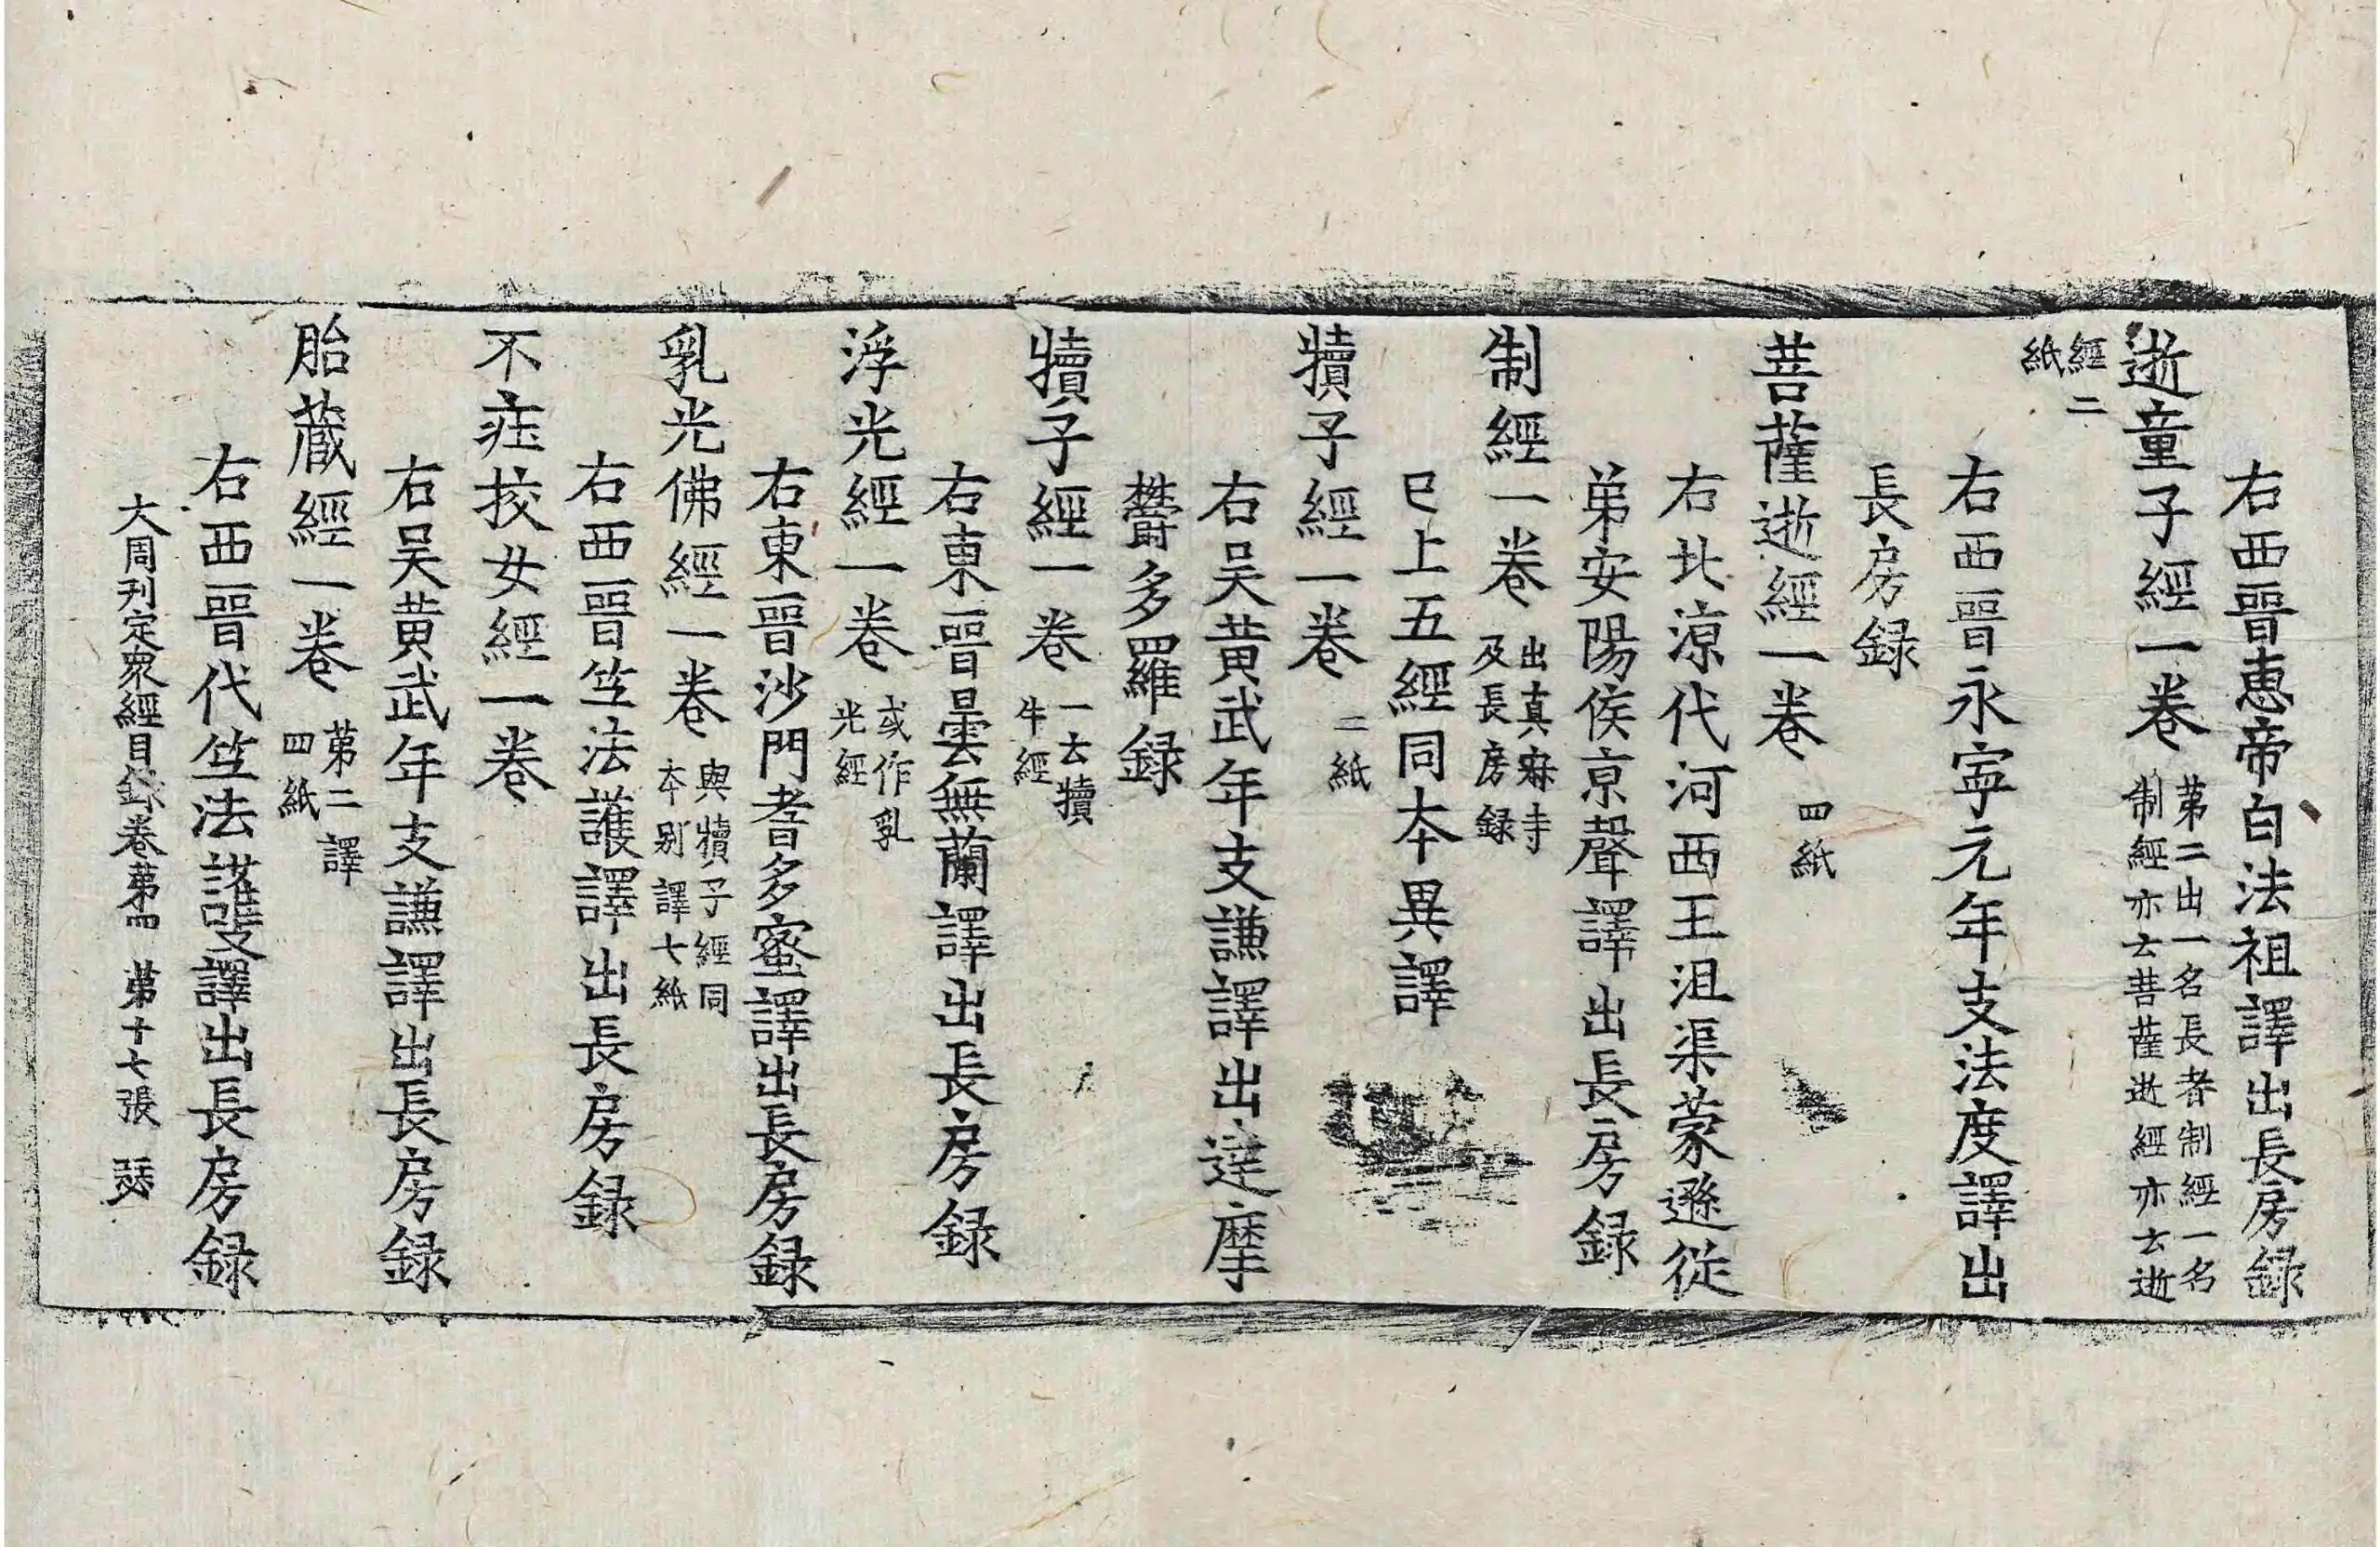 右西晉惠帝白法祖譯出長房録
逝童子經一卷 第二出一名長者制經一名制經亦云菩薩逝經亦云逝
經二紙
右西晉永寧元年支法度譯出
長房録
菩薩逝經一卷 四紙
右北涼代河西王沮渠蒙遜從
弟安陽侯京聲譯出長房録
制經一卷 出真寂寺及長房録
巳上五經同本異譯
犢子經一卷 二紙
右吴黄武年支謙譯出達摩
欝多羅録
犢子經一卷 一云犢牛經
右東晉曇無蘭譯出長房録
浮光經一卷 或作乳光經
右東晉沙門耆多蜜譯出長房録
乳光佛經一卷 與犢子經同本别譯七紙
右西晉竺法護譯出長房録
不莊挍女經一卷
右吴黄武年支謙譯出長房録
胎藏經一卷 第二譯四紙
右西晉代竺法護譯出長房録
大周刊定衆經目録卷第四 第十七張